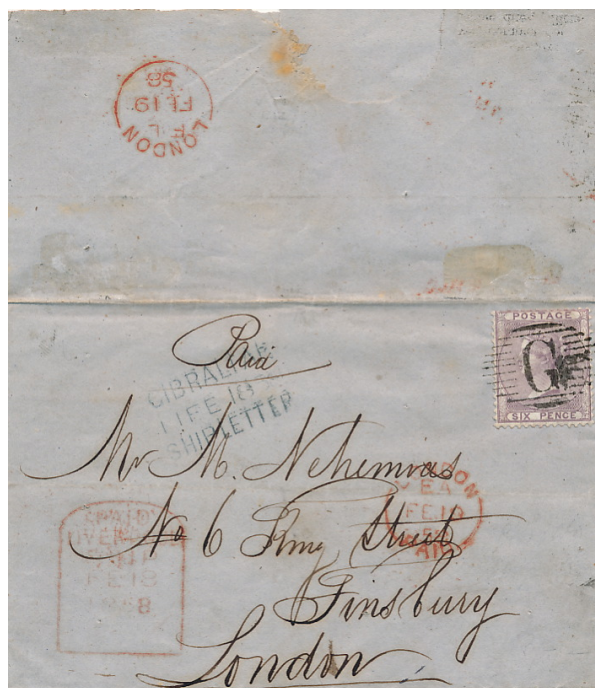 LONDON
F L
FE 19
58
POSTAGE
G
SIX PENCE
Paid
GIBRALTAR
FE 18
SHIP LETTER
Mr M. Nehemias
No 6 King Street
Finsbury
London
LONDON
EA
FE 19
58
PAID
PAID
FE 18